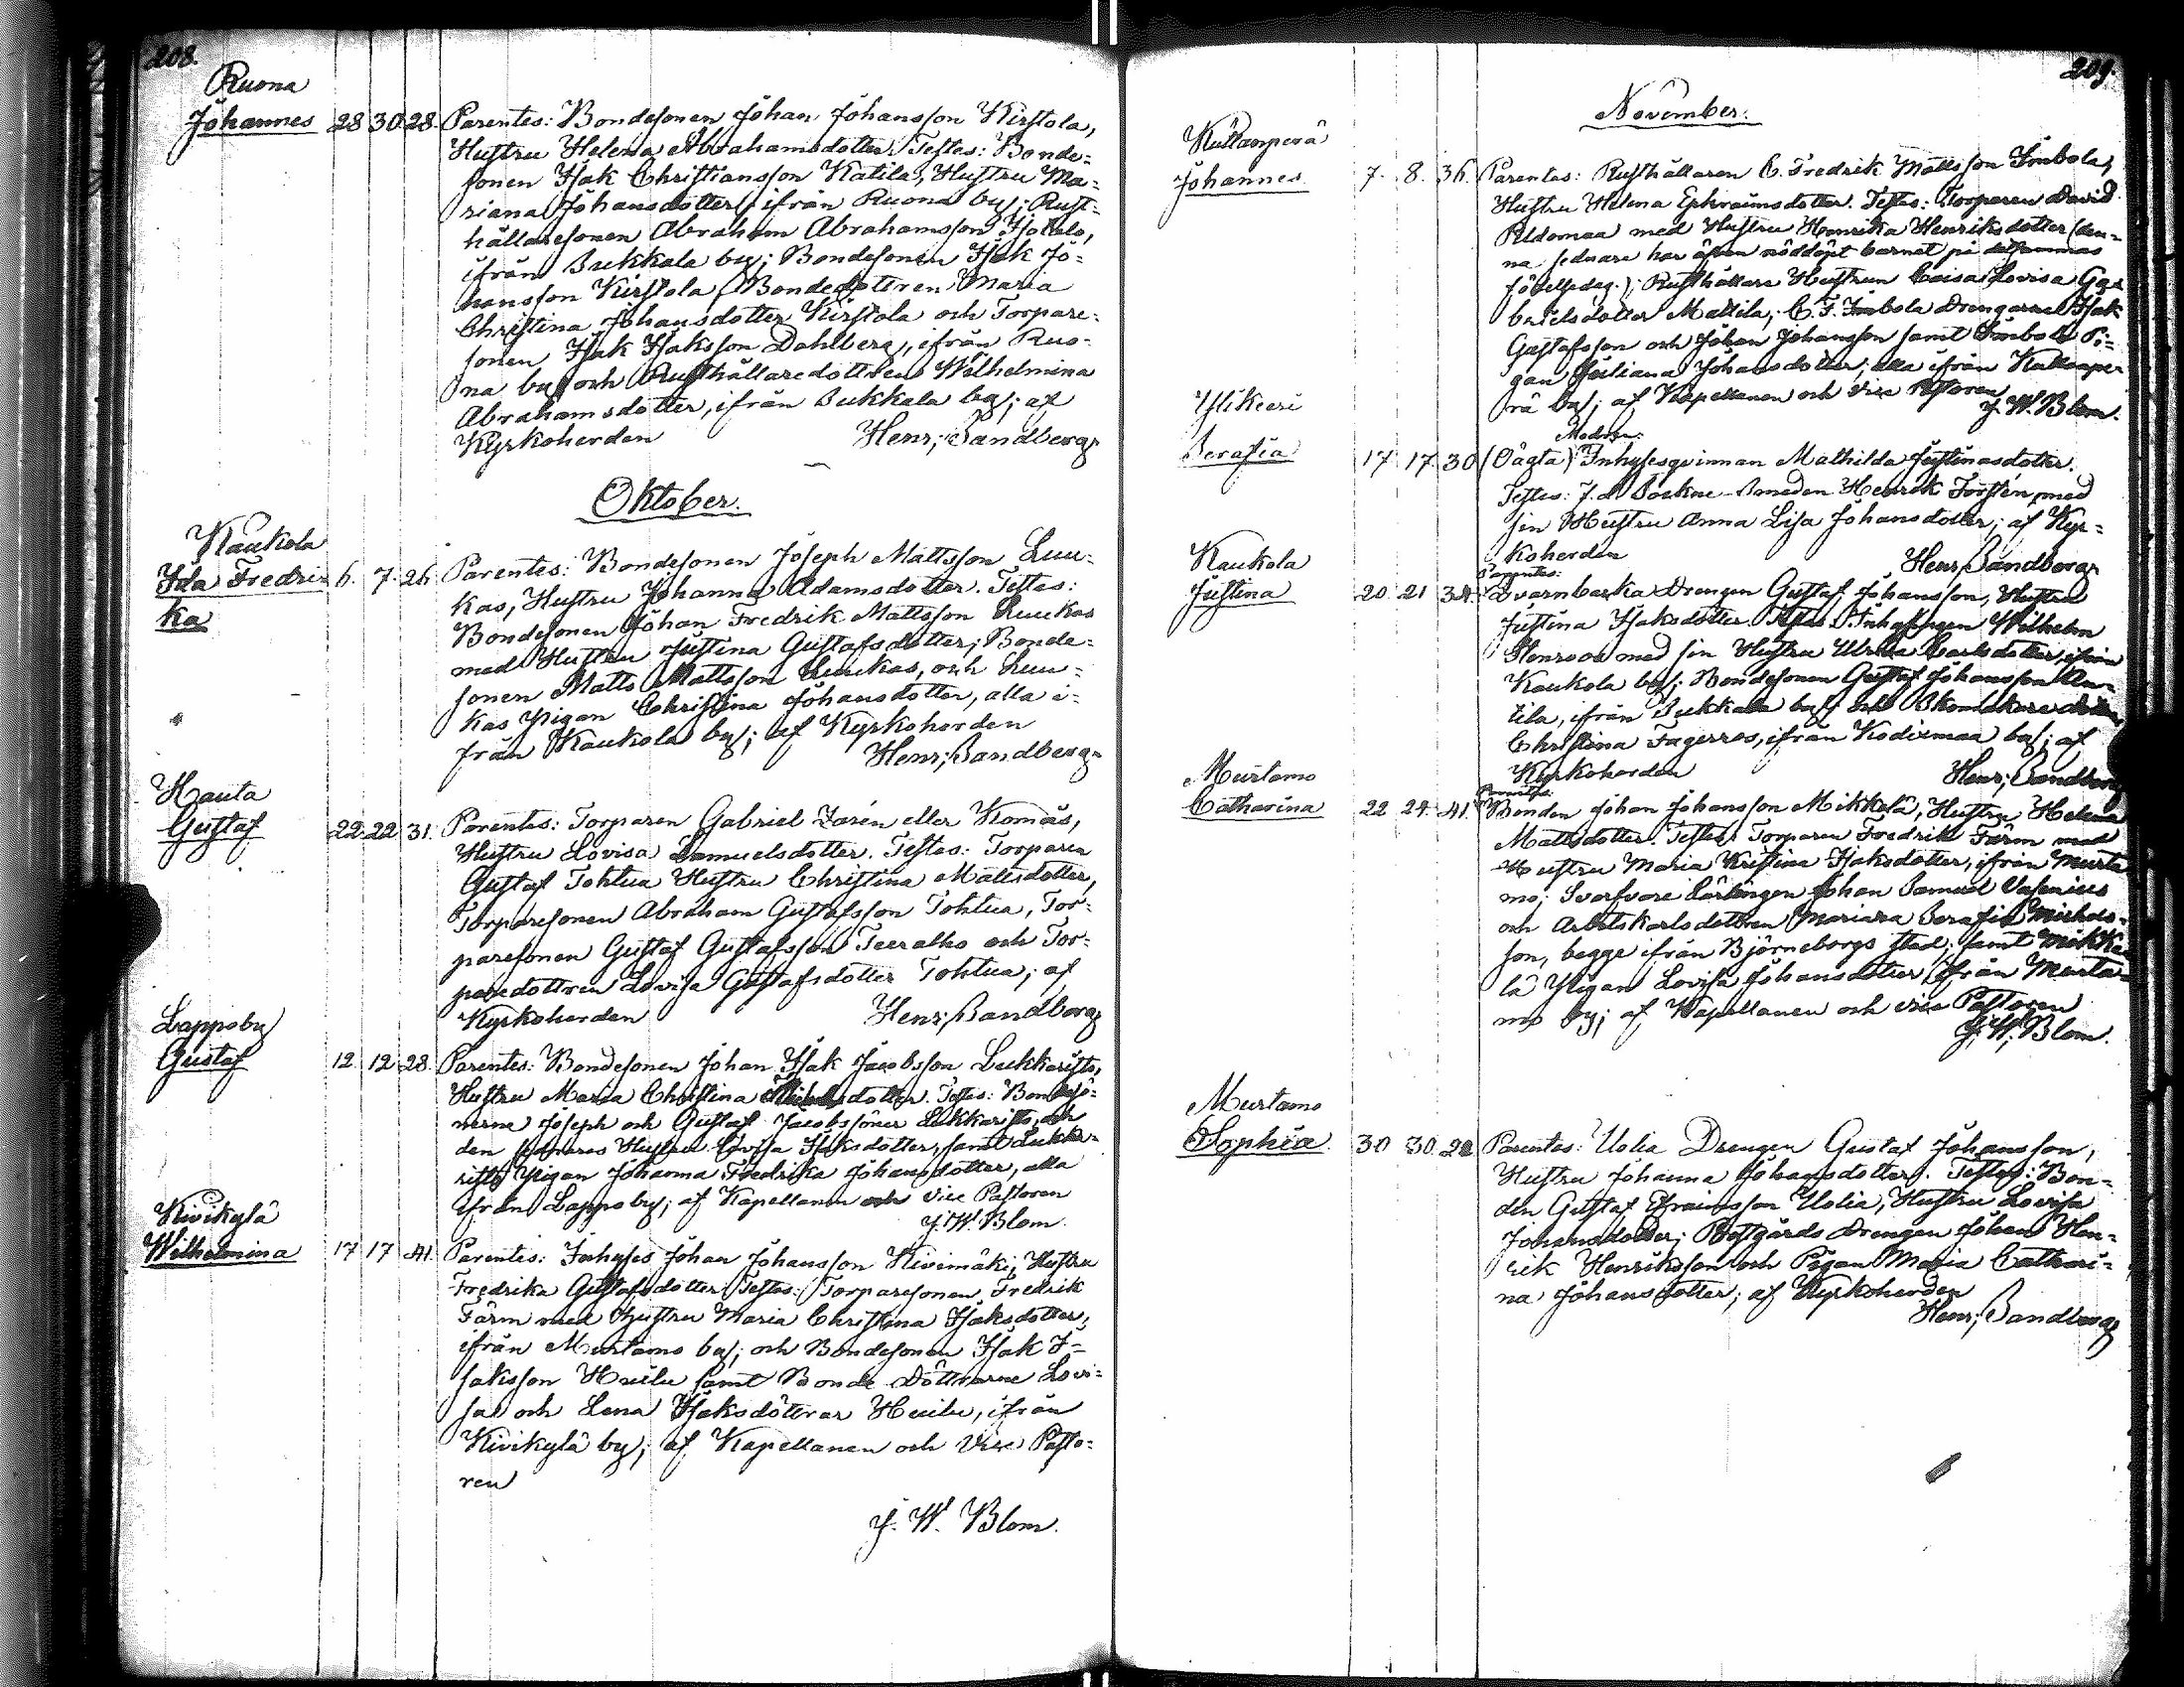 208.
Ruona
Johannes 28 30 28. Parentes: Bondesonen Johan Johansson Kirstola,
Hustru Helena Abrahamsdotter. Testes: Bonde=
sonen Isak Christiansson Katila, Hustru Ma=
riana Johansdotter, ifrån Ruona by; Rust=
hållaresonen Abraham Abrahamsson
ifrån Sukkala by; Bondesonen Isak Jo=
hansson Kirstola, Bondedottren Maria
Christina Johansdotter Kirstola och Torpare=
sonen Isak Isaksson Dahlberg, ifrån Ruo=
na by och Rusthållaredottren Wilhelmina
Abrahamsdotter, ifrån Sukkala by; af
Kyrkoherden Henr; Sandberg
Oktober.
Kaukola
Ida Fredri= 6. 7. 26. Parentes: Bondesonen Joseph Mattsson Luu=
ka
kas, Hustru Johanna Adamsdotter. Testes:
Bondesonen Johan Fredrik Mattsson Luukas
med Hustru Justina Gustafsdotter; Bonde=
sonen Matts Mattsson Luukas, och Luu=
kas Pigan Christina Johansdotter, alla i=
från Kaukola by; af Kyrkoherden
Henr; Sandberg
Hauta
Gustaf 22 22 31. Parentes: Torparen Gabriel Zarén eller Komäs,
Hustru Lovisa Samuelsdotter. Testes: Torparen
Gustaf Tohtua Hustru Christina Mattsdotter,
Torparesonen Abraham Gustafsson Tohtua, Tor=
paresonen Gustaf Gustafsson Teeralho och Tor=
paredottren Lovisa Gustafsdotter Tohtua; af
Kyrkoherden Henr; Sandberg
Lappoby
Gustaf 12 12 28. Parentes: Bondesonen Johan Isak Jacobsson Lukkaristo,
Hustru Maria Christina Testes: Bondesö=
nerne Joseph och Gustaf Jacobssöner Lukkaristo, och
den Hustru Lovisa Isaksdotter, samt Lukka=
risto Pigan Johanna Fredrika Johansdotter, alla
ifrån Lappo by; af Kapellanen och vice Pastoren
J. W. Blom.
Kivikylä
Wilhelmina 17 17 41. Parentes: Inhyses Johan Johansson Kivimäki, Hustru
Fredrika Gustafsdotter. Testes: Torparesonen Fredrik
Färm med Hustru Maria Christina Isaksdotter,
ifrån Murtamo by; och Bondesonen Isak I=
saksson Huilu samt Bonde Döttrarne Lovi=
sa och Lena Isaksdöttrar Huilu, ifrån
Kivikylä by; af Kapellanen och Vice Pasto=
ren
J. W. Blom.
209.
November.
Kullanperä
Johannes. 7. 8. 36. Parentes: Rusthållaren C. Fredrik Mattsson Imbola,
Hustru Helena Ephraimsdotter. Testes: Torparen David
Peldomaa med Hustru Henrika Henriksdotter (den=
na sednare har äfven nöddöpt barnet på
födelsedag.); Rusthållare Hustrun Caisa Lovisa Ga=
brielsdotter Mattila; C. F. Imbola Drengarne Isak
Gustafsson och Johan Johansson samt Imbola Pi=
gan Juliana Johansdotter; alla ifrån Kullanpe=
rä by; af Kapellanen och vice Pastoren
J. W. Blom.
Ylikeeri
Serafia 17 17 30 (Oägta) Modren: Inhysesqvinnan Mathilda Justinasdotter.
Testes: f.d. Socknе-Smeden Henrik Torstén med
sin Hustru Anna Lisa Johansdotter; af Kyr=
koherden Henr; Sandberg
Kaukola
Justina 20 21 34. Parentes: Qvarnbacka Drengen Gustaf Johansson, Hustru
Justina Isaksdotter. Testes: Inhysingen Wilhelm
Henroos med sin Hustru Ulrika Carlsdotter, ifrån
Kaukola by; Bondesonen Gustaf Johansson An=
tila, ifrån Sukkala by; och Skomakaredottren
Christina Fagerroos, ifrån Kodixmaa by; af
Kyrkoherden Henr; Sandberg
Murtamo
Catharina 22 24 41. Parentes: Bonden Johan Johansson Mikkola, Hustru Helena
Mattsdotter. Testes: Torparen Fredrik Färm med
Hustru Maria Kristina Isaksdotter, ifrån Murta=
mo; Svarfvare Lärlingen Johan Samuel Vasenius
och Arbetskarlsdottren Mariana Serafia Michels=
son, begge ifrån Björneborgs stad; samt Mikko=
la Pigan Lovisa Johansdotter ifrån Murta=
mo by; af Kapellanen och vice Pastoren
J. W. Blom.
Murtamo
Sophia. 30 30 Parentes: Uolia Drengen Gustaf Johansson,
Hustru Johanna Johansdotter. Testes: Bon=
den Gustaf Efraimsson Uolia, Hustru Lovisa
Johansdotter; Prestgårds Drengen Johan Hen=
rik Henriksson och Pigan Maria Cathari=
na Johansdotter; af Kyrkoherden
Henr; Sandberg